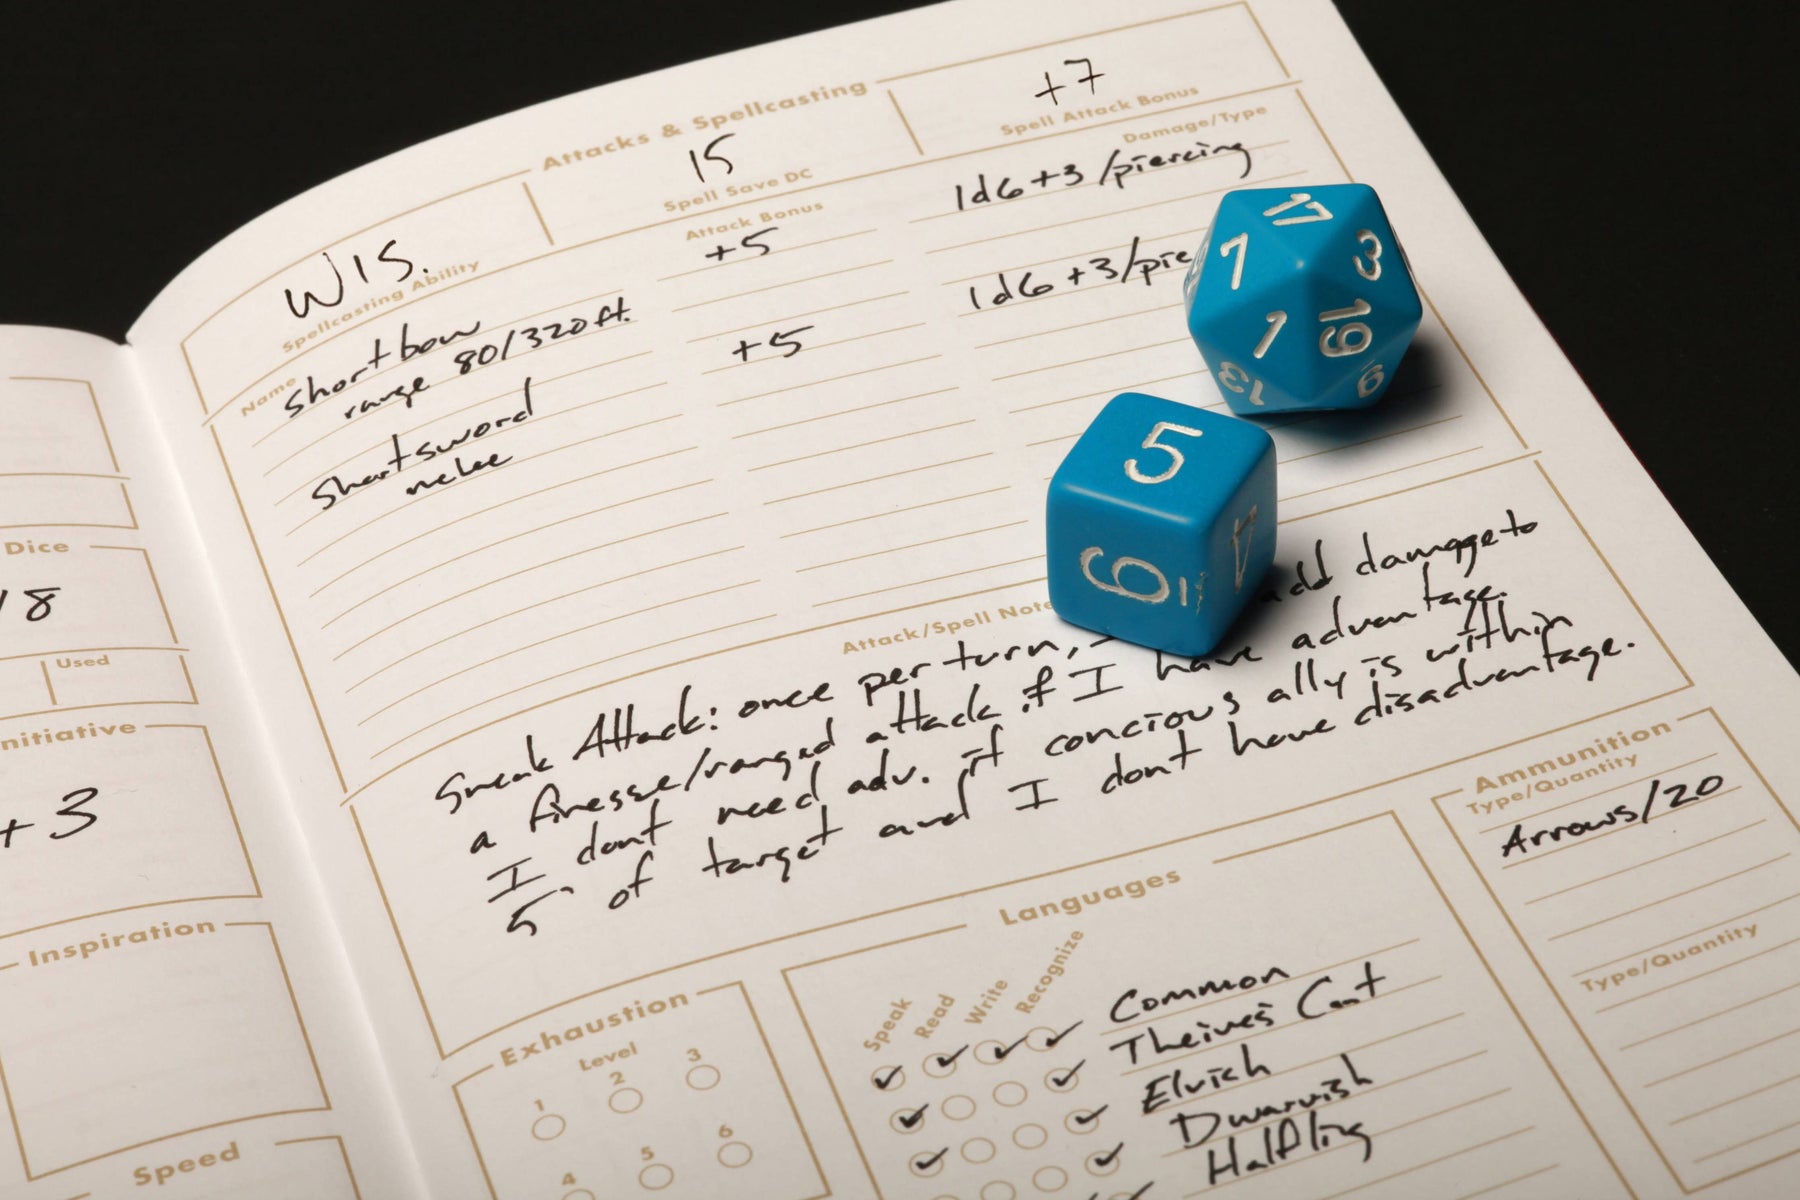 Dice
18
Used
nitiative
+3
Inspiration
Speed
Attacks & Spellcasting
WIS.
Spellcasting Ability
15
Spell Save DC
+7
Spell Attack Bonus
Name
Attack Bonus
Damage/Type
Shortbow
range 80/320ft.
+5
1d6+3/piercing
Shortsword
melee
+5
1d6+3/pie
17
7
3
1
19
13
9
5
6
4
Attack/Spell Note
Sneak Attack: once per turn, add damage to
a finesse/ranged attack if I have advantage.
I dont need adv. if concious ally is within
5' of target and I dont have disadvantage.
Exhaustion
Level
1 2 3
4 5 6
Languages
Speak Read Write Recognize
Common
Theives Cant
Elvish
Dwarvish
Halfling
Ammunition
Type/Quantity
Arrows/20
Type/Quantity